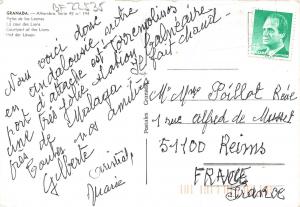 GRANADA. - Alhambra.
Patio de los Leones
La cour des Lions
Courtyard of the Lions
Hof der Löwen
BF 22535
Nous voici donc
en Andalousie notre
port d'attache est Torremolinos
une très jolie station balnéaire
près de Malaga il fait chaud.
Toutes nos amitiés
Gilberte
Marie
Postales
M. Mme Poillot René
1 rue Alfred de Musset
51100 Reims
FRANCE
France